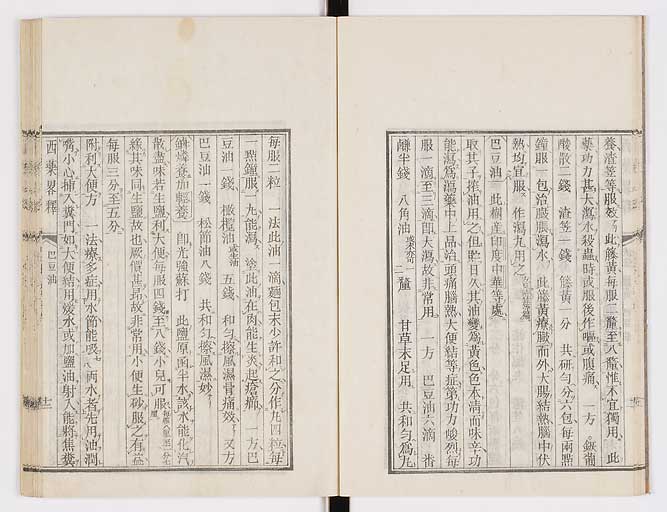 養渣笠等服效此籐黃每服二釐至八釐惟不宜獨用此
藥功力甚大瀉水殺蟲時或服後作嘔或腹痛一方鉮葡
酸散二錢渣笠一錢籐黃一分共研勻分六包每兩點
鐘服一包治臌脹瀉水此籐黃療臟而外大腸結熱腦中伏
熱均宜服作瀉九用之
巴豆油此樹產印度中華等處
取其子搾油用之但貯日久其油變為黃色色本清而味辛功
能瀉為瀉藥中上品治頭痛腦熱大便結等症第功力峻烈每
服一滴至三滴即大瀉故非常用一方巴豆油六滴番
鹻半錢八角油一二釐甘草末足用共和勻為九
每服二粒一法此油一滴麵包末少許和之分作九四粒每
一點鐘服一九能瀉塗此油在肉能生炎起瘡癤一方巴
豆油一錢橄欖油五錢和勻擦風濕骨痛效又方
巴豆油一錢松節油八錢共和勻擦風濕妙
鏀燐養加輕養即光強蘇打此鹽原函半水該水能化汽
散盡味若生鹽利大便每服四錢至八錢小兒可服
緣其味同生鹽故也厥價甚昂故非常用小便生砂服之有益
每服三分至五分
附利大便方一法療多症用水節能吸八兩水者先用油潤
嘴小心插入糞門如大便結用煖水或加鹽油射入能將焦糞
西藥畧釋
巴豆油
十二